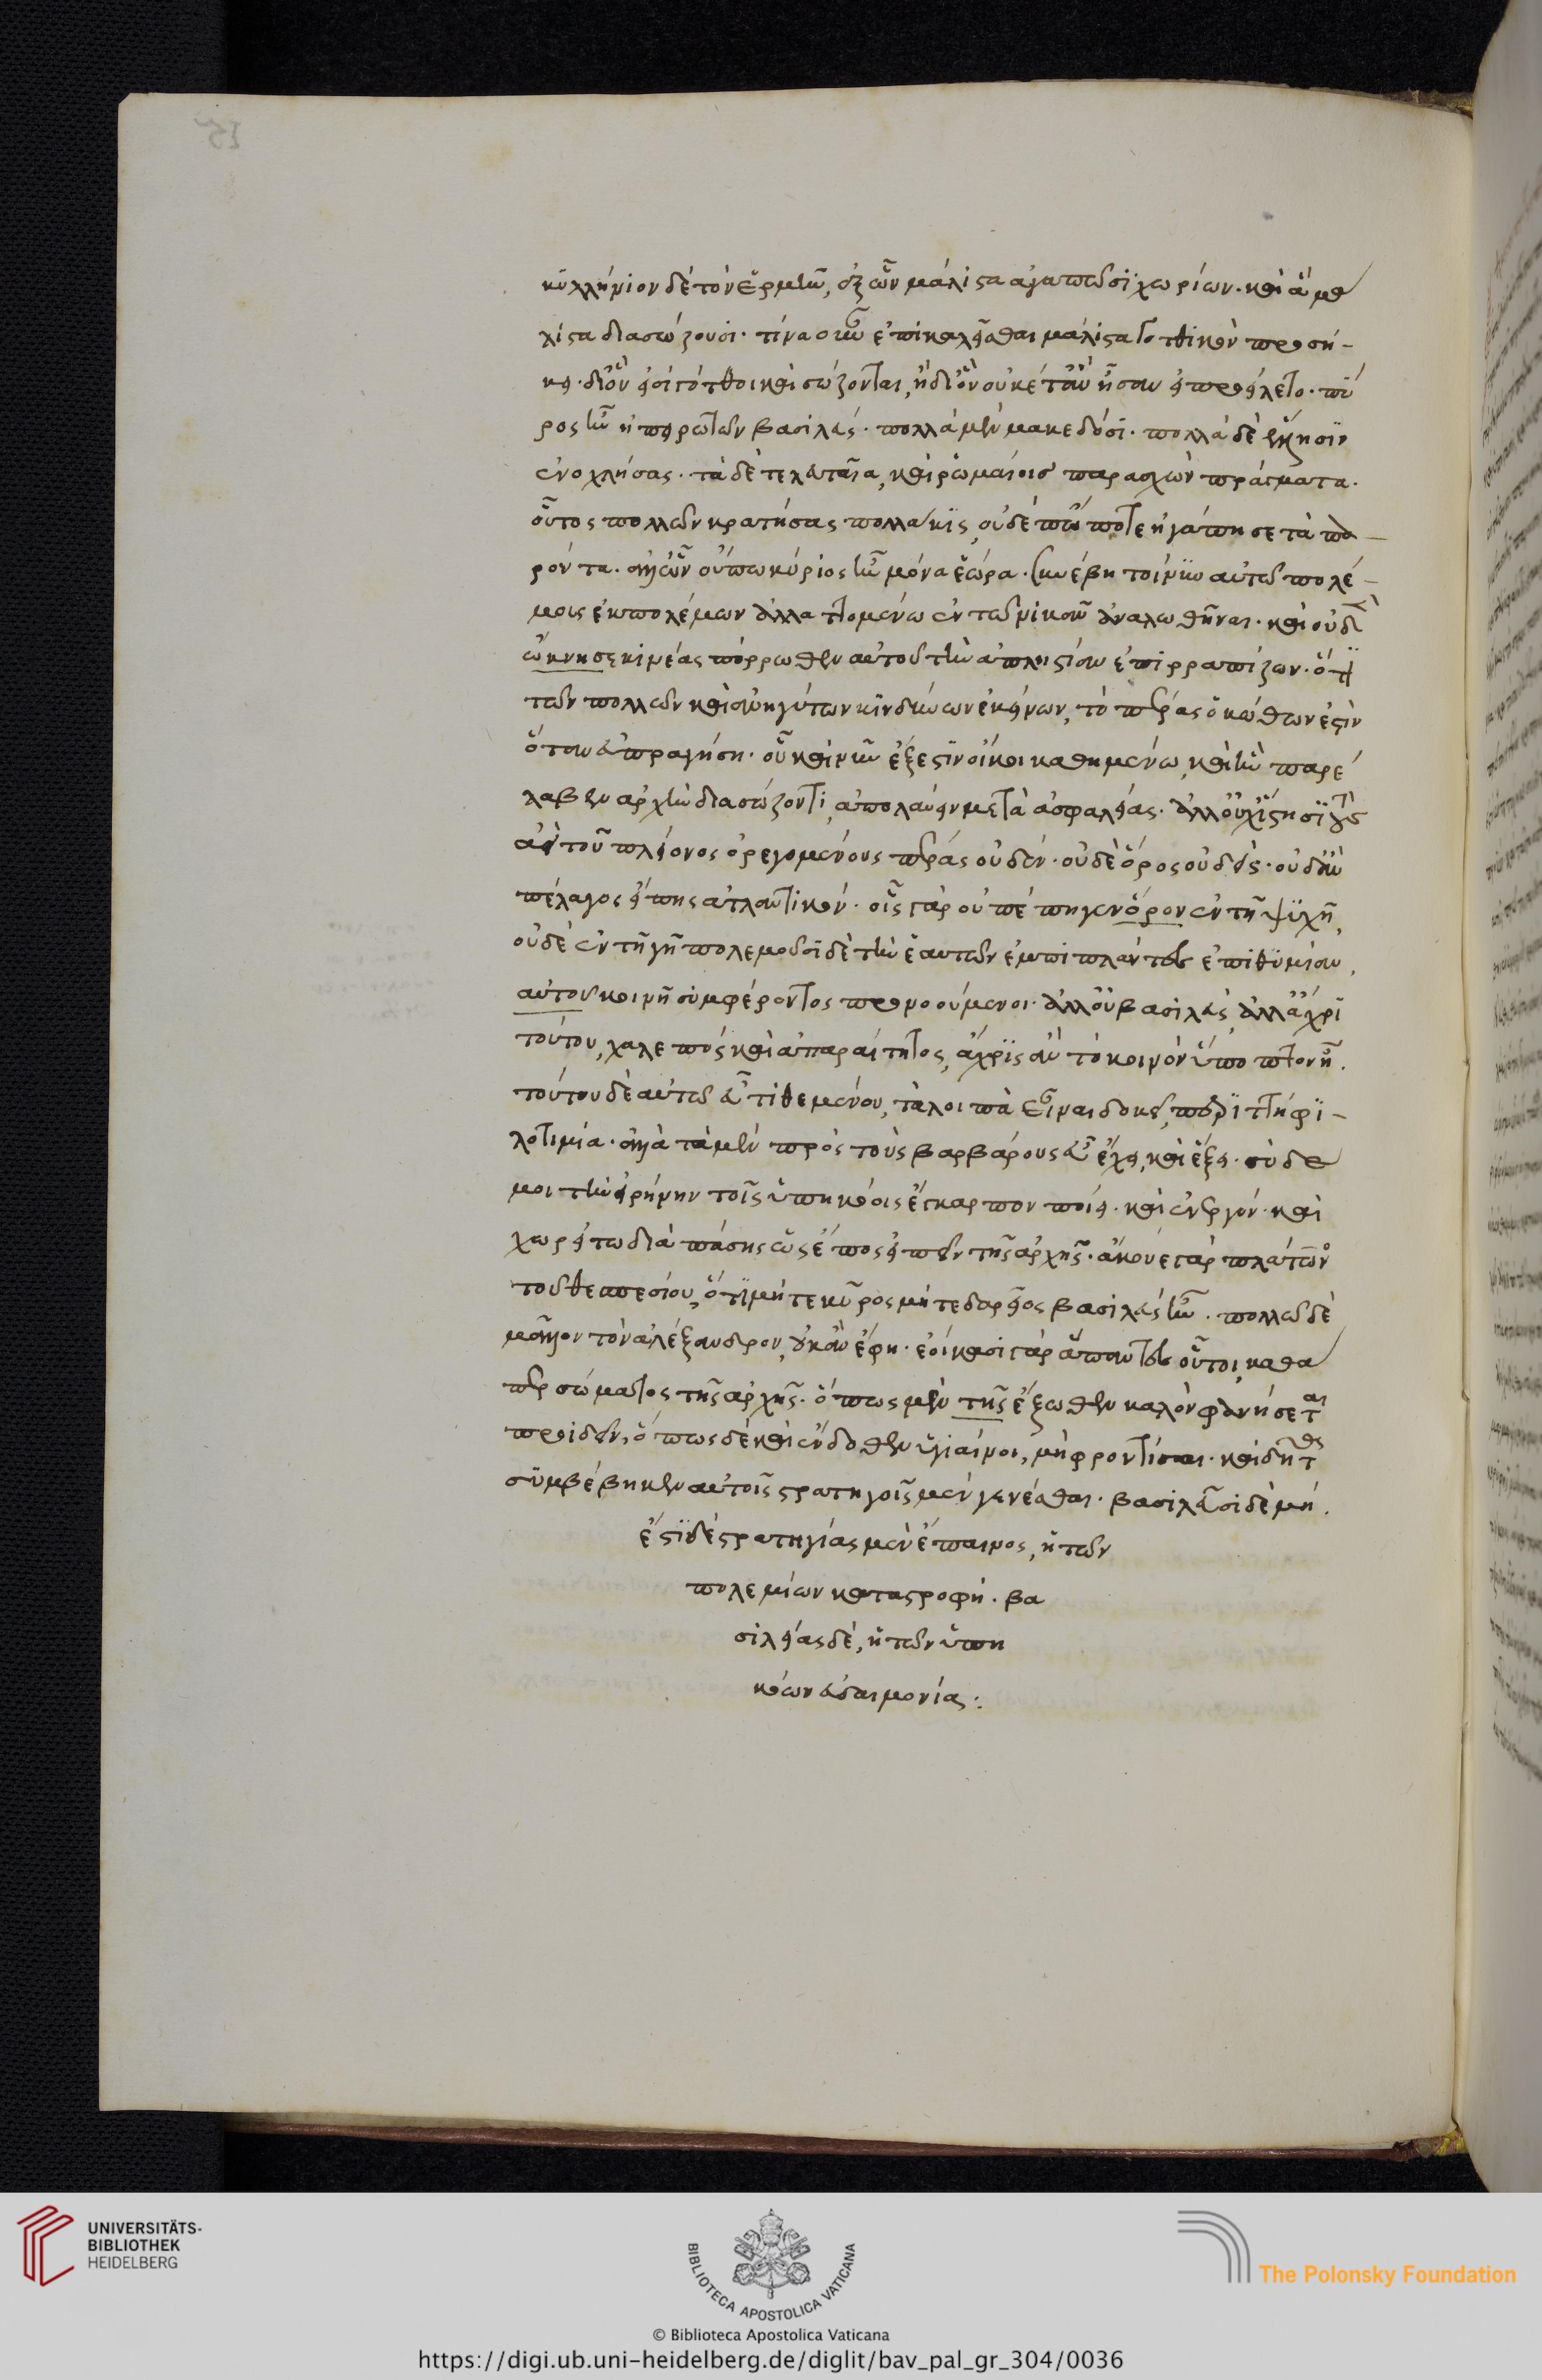 κυλλήνιον δὲ τὸν ἑρμῆν, ἐξ ὧν μάλιστα ἀγαπῶσι χωρίων. καὶ ἃ μά
λιστα διασώζουσι. τίνα οὖν ἐπικαλεῖσθαι μάλιστα γοτθικὸν προσή-
κει. δι' ὃν εἰσὶ γότθοι καὶ σώζονται, ἢ δι' ὃν οὐκέτ' ἂν ἦσαν εἰ προείλετο. πύ
ρος ἦν ἠπειρωτῶν βασιλεύς. πολλὰ μὲν μακεδόσι. πολλὰ δὲ ἕλλησιν
ἐνοχλήσας. τὰ δὲ τελευταῖα, καὶ ῥωμαίοις παρασχὼν πράγματα.
οὗτος πολλῶν κρατήσας πολλάκις, οὐδεπώποτε ἠγάπησε τὰ πα-
ρόντα. ἀλλ' ὧν οὔπω κύριος ἦν μόνα ἑώρα. συνέβη τοίνυν αὐτῶ πολέ-
μοις ἐκ πολέμων ἀλλαττομένω ἐν τῶ νικᾶν ἀναλωθῆναι. καὶ οὐδὲν
ὤκνησε κινέας πόρρωθεν αὐτοῦ τὴν ἀπληστίαν ἐπιρραπίζων. ὅτι
τῶν πολλῶν καὶ ἀνηνύτων κινδύνων ἐκείνων, τὸ πέρας ὁ κώθων ἐστὶν
ὅταν εὐπραγήση. οὗ καὶ νῦν ἔξεστιν οἴκοι καθημένω, καὶ ἣν παρέ
λαβεν ἀρχὴν διασώζοντι, ἀπολαύειν μετὰ ἀσφαλείας. ἀλλ' οὐχ ἵστησι τοὺς
ἀεὶ τοῦ πλείονος ὀρεγομένους πέρας οὐδέν. οὐδὲ ὄρος οὐδείς. οὐδ' ἂν
πέλαγος εἴπης ἀτλαντικόν. οἷς γὰρ οὐ πέπηγεν ὅρον ἐν τῆ ψυχῆ,
οὐδὲ ἐν τῆ γῆ πολεμοῦσι δὲ τὴν ἑαυτῶν ἐμπιπλάντες ἐπιθυμίαν,
αὐτοῦ κοινῆ συμφέροντος προνοούμενοι. ἀλλ' οὐ βασιλεύς, ἀλλ' ἄχρι
τούτου, χαλεπὸς καὶ ἀπαραίτητος, ἄχρις ἂν τὸ κοινὸν ὕποπτον ἦ.
τούτου δὲ αὐτῶ εὖ τιθεμένου, τὰ λοιπὰ εἶναι δοκεῖ, περιττὴ φι-
λοτιμία. ἀλλὰ τὰ μὲν πρὸς τοὺς βαρβάρους εὖ ἔχει, καὶ ἕξει. σὺ δέ
μοι τὴν εἰρήνην τοῖς ὑπηκόοις ἔγκαρπον ποίει. καὶ ἐνεργόν. καὶ
χωρείτω διὰ πάσης ὡς ἔπος εἰπεῖν τῆς ἀρχῆς. ἄκουε γὰρ πλάτωνος
τοῦ θεσπεσίου, ὅτι μήτε κῦρος μήτε δαρεῖος βασιλεὺς ἦν. πολλῶ δὲ
μᾶλλον τὸν ἀλέξανδρον, οὐκ ἂν ἔφη. ἐοίκασι γὰρ ἅπαντες οὗτοι, καθά
περ σώματος τῆς ἀρχῆς. ὅπως μὲν τῆς ἔξωθεν καλὸν φανήσεται
προϊδεῖν, ὅπως δὲ καὶ ἔνδοθεν ὑγιαίνοι, μὴ φροντίσαι. καὶ δὴ
συμβέβηκεν αὐτοῖς στρατηγοῖς μὲν γενέσθαι. βασιλεῦσι δὲ μή.
ἔστι δὲ στρατηγίας μὲν ἔπαινος, ἡ τῶν
πολεμίων καταστροφή. βα
σιλείας δέ, ἡ τῶν ὑπη
κόων εὐδαιμονία:
15
UNIVERSITÄTS-
BIBLIOTHEK
HEIDELBERG
BIBLIOTECA APOSTOLICA VATICANA
The Polonsky Foundation
© Biblioteca Apostolica Vaticana
https://digi.ub.uni-heidelberg.de/diglit/bav_pal_gr_304/0036